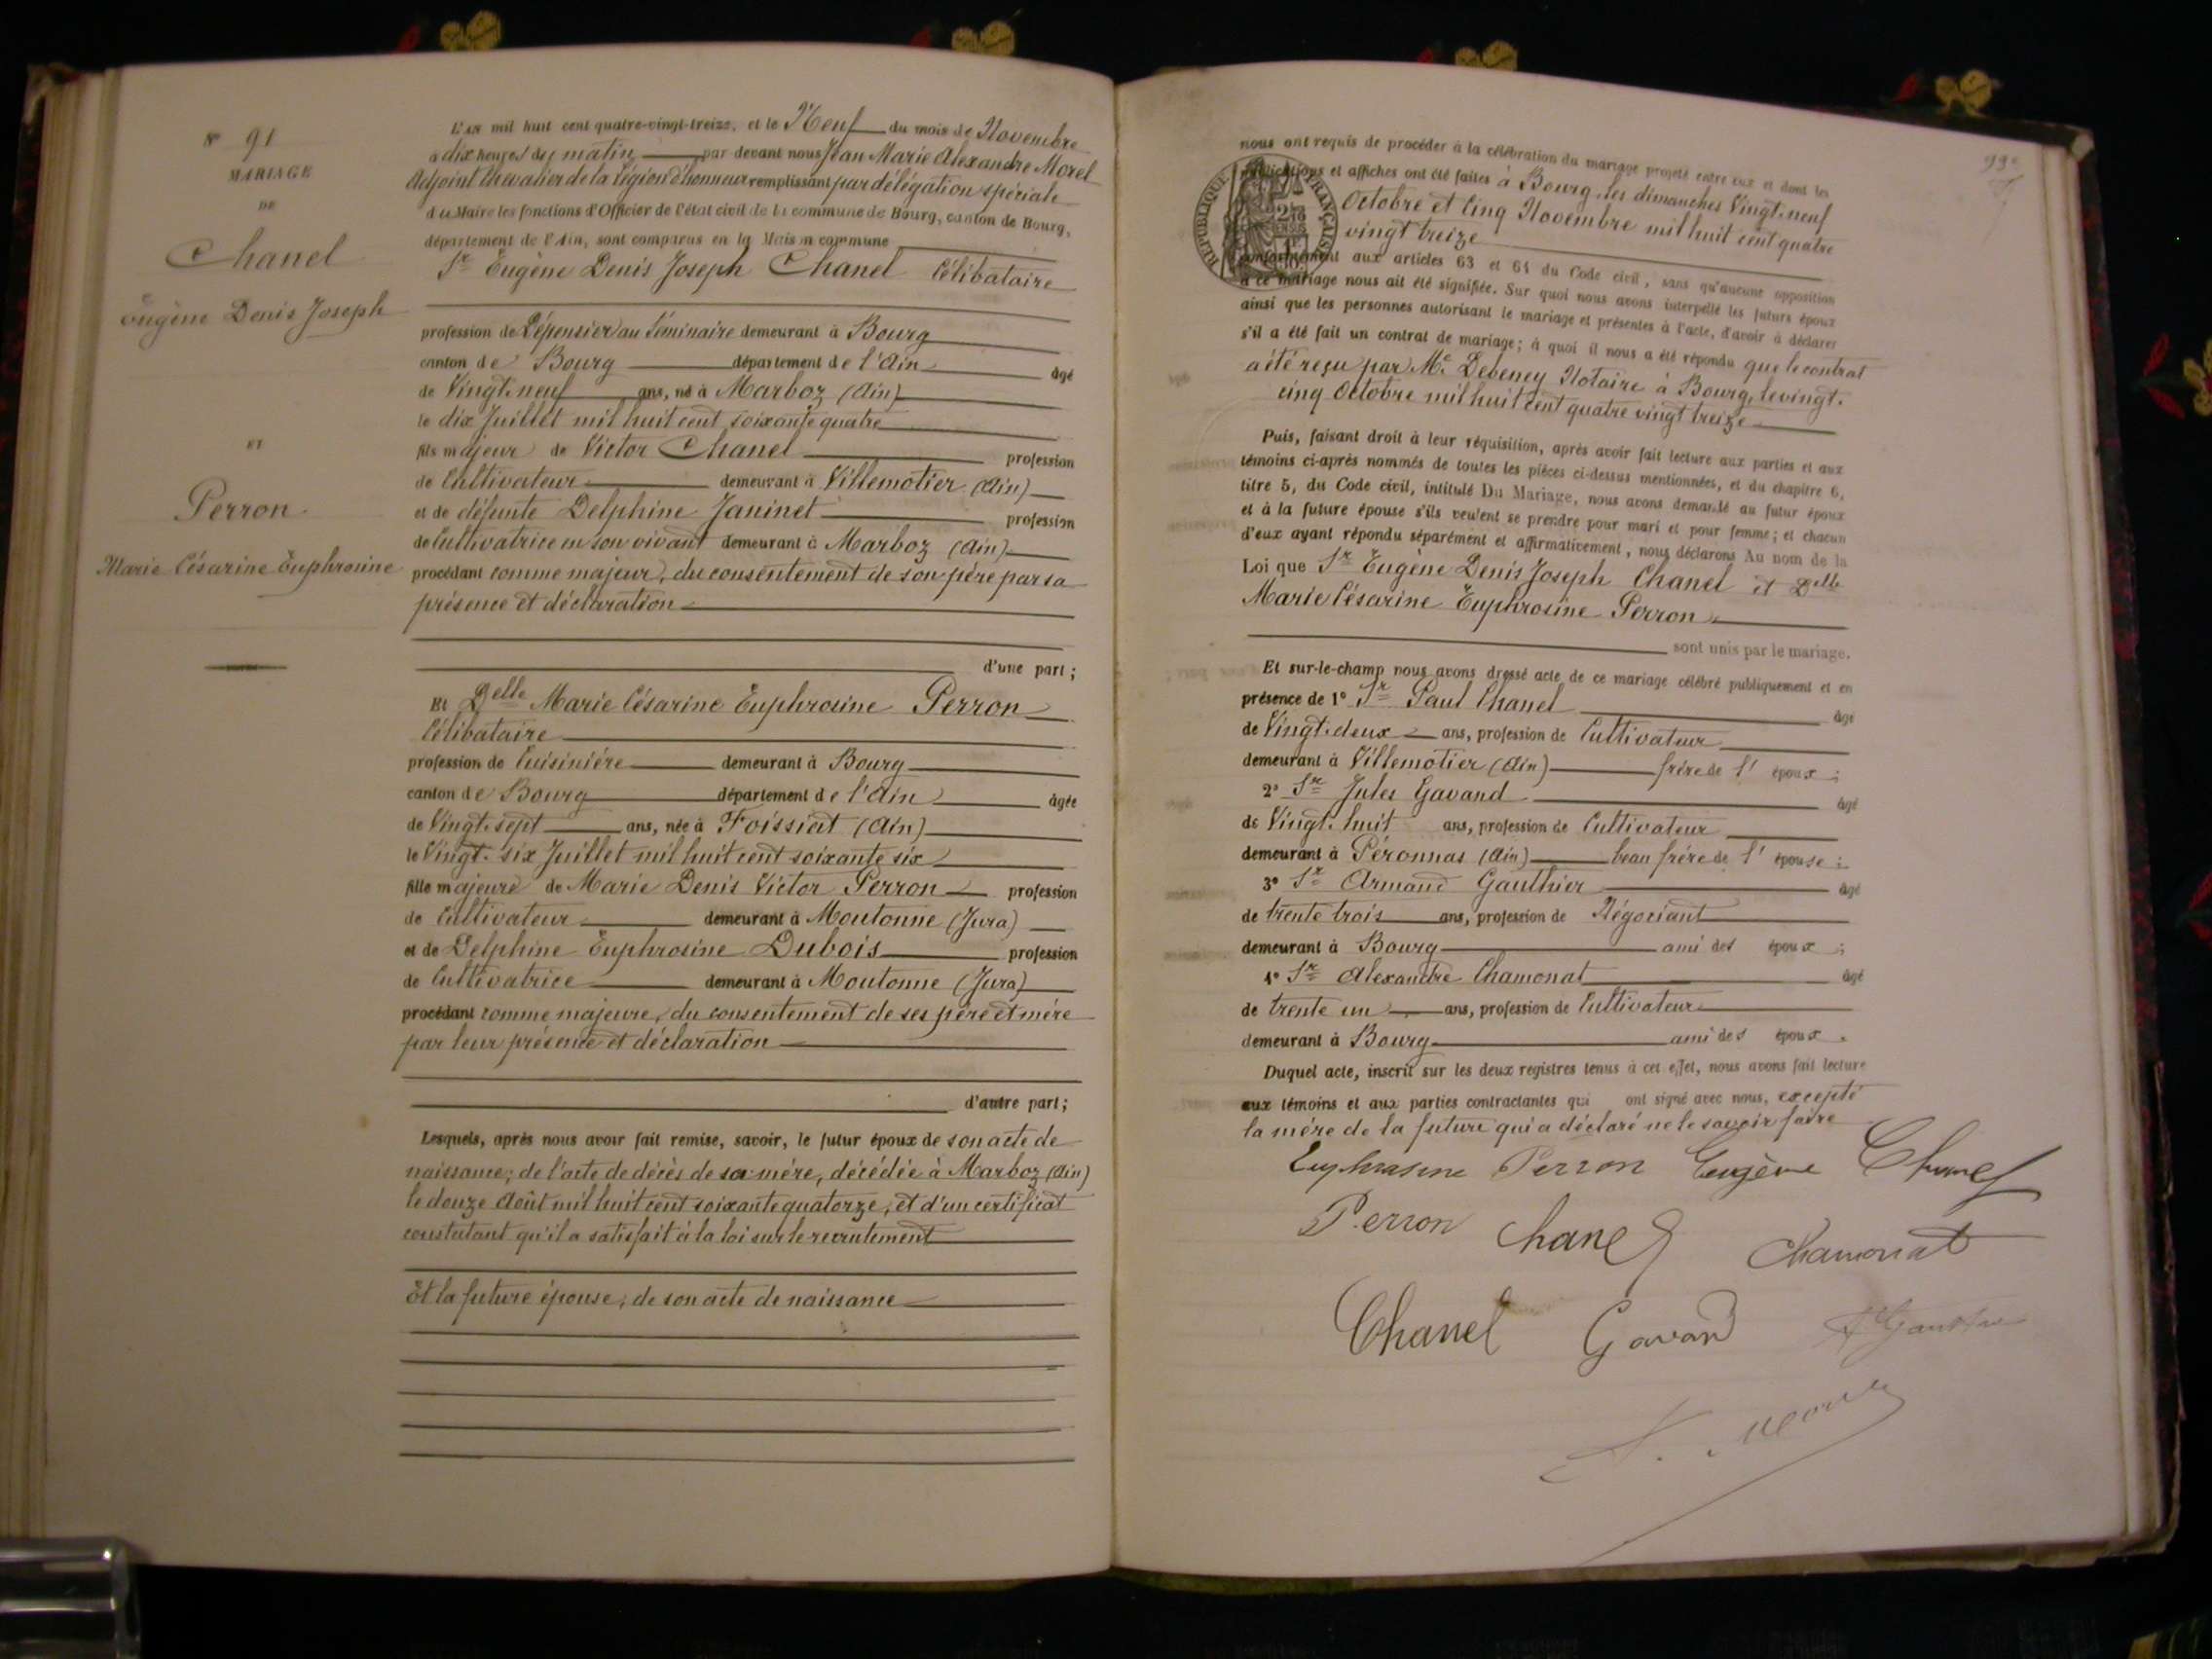 N° 91
MARIAGE
DE
Chanel
Eugène Denis Joseph
ET
Perron
Marie Césarine Euphrosine
L'AN mil huit cent quatre-vingt-treize, et le Neuf du mois de Novembre
à dix heures du matin par devant nous Jean Marie Alexandre Morel
Adjoint Chevalier de la Légion d'honneur remplissant par délégation spéciale
du Maire les fonctions d'Officier de l'état civil de la commune de Bourg, canton de Bourg,
département de l'Ain, sont comparus en la Maison commune
Sr Eugène Denis Joseph Chanel Célibataire
profession de Dépensier au Séminaire demeurant à Bourg
canton de Bourg département de l'Ain âgé
de Vingt-neuf ans, né à Marboz (Ain)
le dix Juillet mil huit cent soixante quatre
fils majeur de Victor Chanel profession
de Cultivateur demeurant à Villemotier (Ain)
et de défunte Delphine Janinet profession
de Cultivatrice en son vivant demeurant à Marboz (Ain)
procédant comme majeur, du consentement de son père par sa
présence et déclaration
d'une part ;
Et Delle Marie Césarine Euphrosine Perron
Célibataire
profession de Cuisinière demeurant à Bourg
canton de Bourg département de l'Ain âgée
de Vingt-sept ans, née à Foissiat (Ain)
le Vingt-six Juillet mil huit cent soixante six
fille majeure de Marie Denis Victor Perron profession
de Cultivateur demeurant à Moutonne (Jura)
et de Delphine Euphrosine Dubois profession
de Cultivatrice demeurant à Moutonne (Jura)
procédant comme majeure, du consentement de ses père et mère
par leur présence et déclaration
d'autre part ;
Lesquels, après nous avoir fait remise, savoir, le futur époux de son acte de
naissance; de l'acte de décès de sa mère, décédée à Marboz (Ain)
le douze Août mil huit cent soixante quatorze; et d'un certificat
constatant qu'il a satisfait à la loi sur le recrutement
Et la future épouse, de son acte de naissance
99e
nous ont requis de procéder à la célébration du mariage projeté entre eux et dont les
publications et affiches ont été faites à Bourg, les dimanches Vingt-neuf
Octobre et Cinq Novembre mil huit cent quatre
vingt treize
RÉPUBLIQUE FRANÇAISE
conformément aux articles 63 et 64 du Code civil, sans qu'aucune opposition
à ce mariage nous ait été signifiée. Sur quoi nous avons interpellé les futurs époux
ainsi que les personnes autorisant le mariage et présentes à l'acte, d'avoir à déclarer
s'il a été fait un contrat de mariage; à quoi il nous a été répondu que le contrat
a été reçu par Me Debeney Notaire à Bourg, le vingt-
cinq Octobre mil huit cent quatre vingt treize
Puis, faisant droit à leur réquisition, après avoir fait lecture aux parties et aux
témoins ci-après nommés de toutes les pièces ci-dessus mentionnées, et du chapitre 6,
titre 5, du Code civil, intitulé Du Mariage, nous avons demandé au futur époux
et à la future épouse s'ils veulent se prendre pour mari et pour femme; et chacun
d'eux ayant répondu séparément et affirmativement, nous déclarons Au nom de la
Loi que Sr Eugène Denis Joseph Chanel et Delle
Marie Césarine Euphrosine Perron
sont unis par le mariage.
Et sur-le-champ nous avons dressé acte de ce mariage célébré publiquement et en
présence de 1° Sr Paul Chanel âgé
de Vingt-deux ans, profession de Cultivateur
demeurant à Villemotier (Ain) frère de l'époux ;
2° Sr Jules Gavand âgé
de Vingt-huit ans, profession de Cultivateur
demeurant à Péronnas (Ain) beau frère de l'épouse ;
3° Sr Armand Gauthier âgé
de trente trois ans, profession de Négociant
demeurant à Bourg ami des époux ;
4° Sr Alexandre Chamonat âgé
de trente un ans, profession de Cultivateur
demeurant à Bourg ami des époux.
Duquel acte, inscrit sur les deux registres tenus à cet effet, nous avons fait lecture
aux témoins et aux parties contractantes qui ont signé avec nous, excepté
la mère de la future qui a déclaré ne le savoir faire
Euphrasine Perron Eugène Chanel
Perron Chanel Chamonat
Chanel Gavand A Gauthier
A. Morel